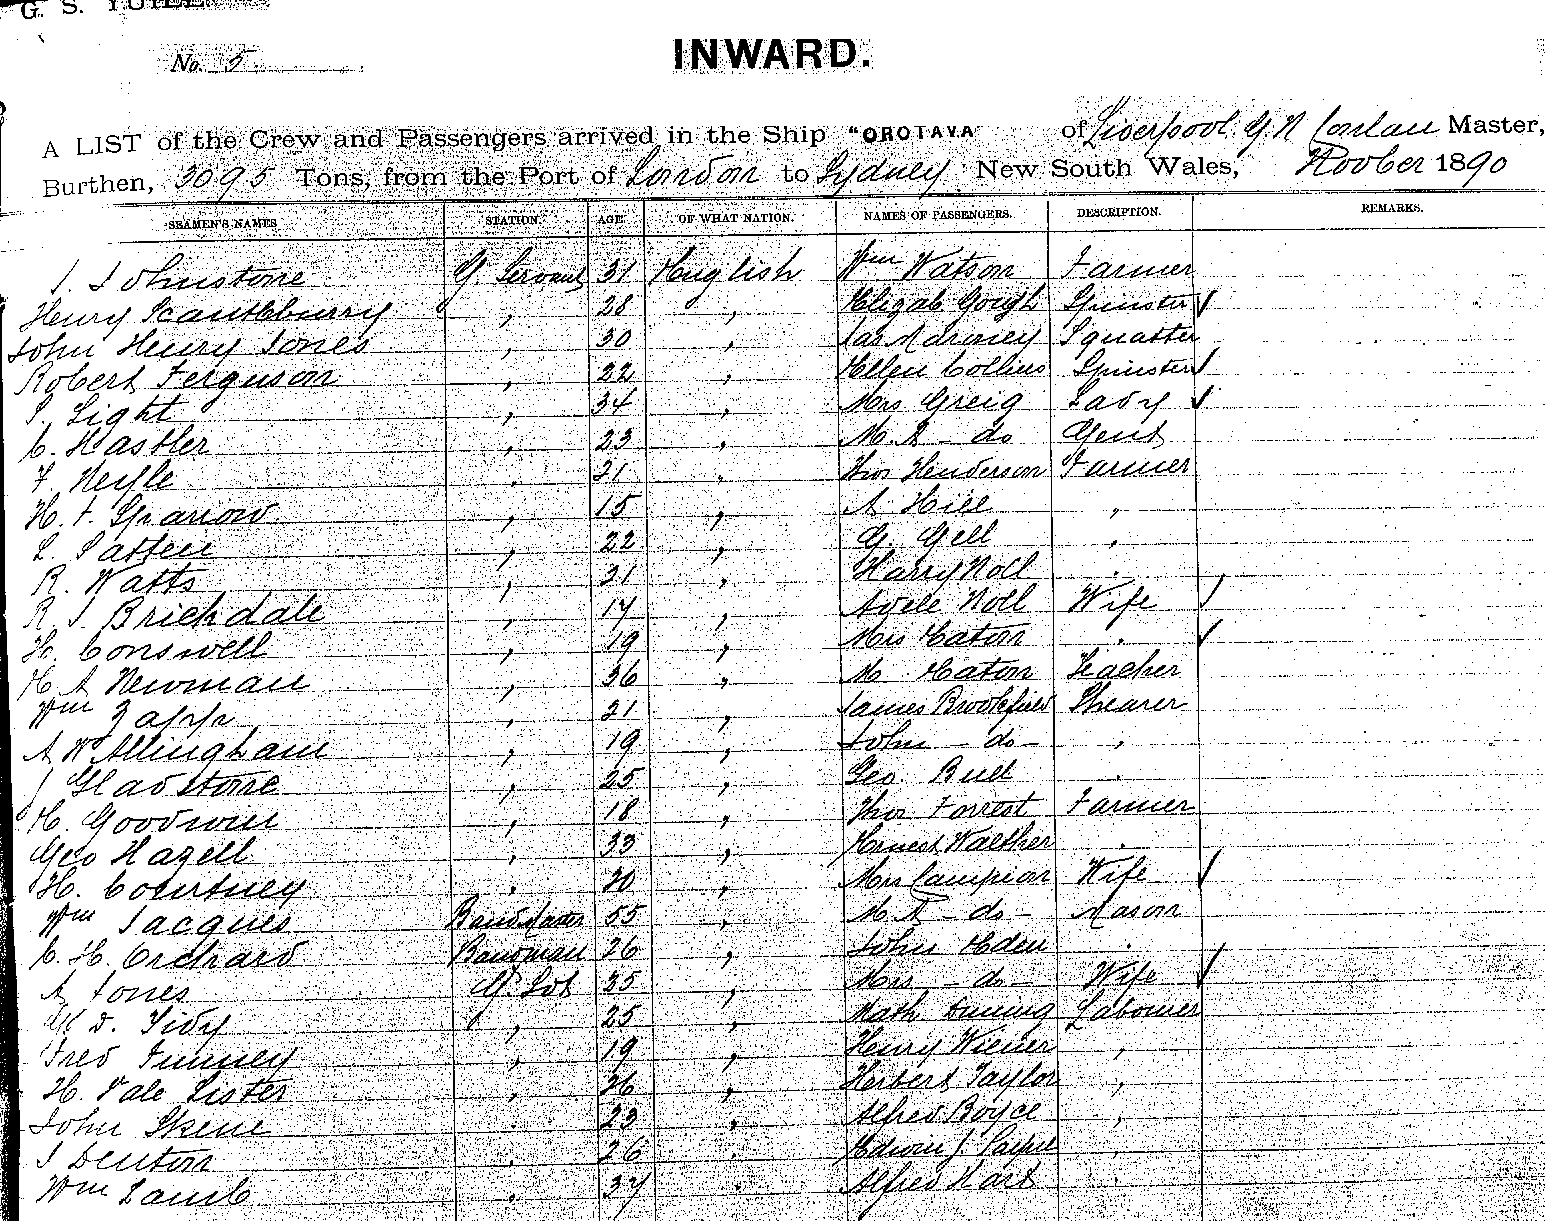 G. S. YUILL
No. 5.
INWARD.
A LIST of the Crew and Passengers arrived in the Ship "OROTAVA" of Liverpool. G. N. Conlan Master,
Burthen, 3095 Tons, from the Port of London to Sydney New South Wales, Novber 1890
SEAMEN'S NAMES STATION. AGE OF WHAT NATION. NAMES OF PASSENGERS. DESCRIPTION. REMARKS.
J. Johnstone G. Servant 31 English Wm Watson Farmer
Henry Scantleburry " 28 " Elizab Gough Spinster
John Henry Jones " 30 " Squatter
Robert Ferguson " 22 " Ellen Collins Spinster
Light " 34 " Mrs Greig Lady
C. Hastler " 23 " M. R - do Gent
F Neyle " 21 " Thos Henderson Farmer
H. F. Sparrow " 15 " A Hill "
Patten " 22 " G. Gell "
R. Watts " 21 " Harry Noll "
R. J Brickdale " 17 " Adele Noll Wife
H. Conswell " 19 " Mrs Eaton "
H A Newman " 36 " M Eaton Teacher
Wm Zapp " 21 " James Brookfield Shearer
A W Allingham " 19 " John - do - "
J Gladstone " 25 " Geo. Bud "
H. Goodwin " 18 " Thos Forrest Farmer
Geo Hazell " 33 " Ernest Walther "
H. Courtney " 20 " Mrs Campion Wife
Wm Jacques BandMaster 55 " M. R - do - Mason
C. H. Orchard Bandman 26 " John Eden "
A Jones G. Svt 25 " Mrs - do - Wife
D. Tidy " 25 " Math Labourer
Fred Finney " 19 " Henry Wiener "
H. Vale Lister " 26 " Herbert Taylor "
John Skene " 23 " Alfred Boyce "
J Denton " 26 " Edwin J. "
Wm Lamb " 37 " Alfred Hart "